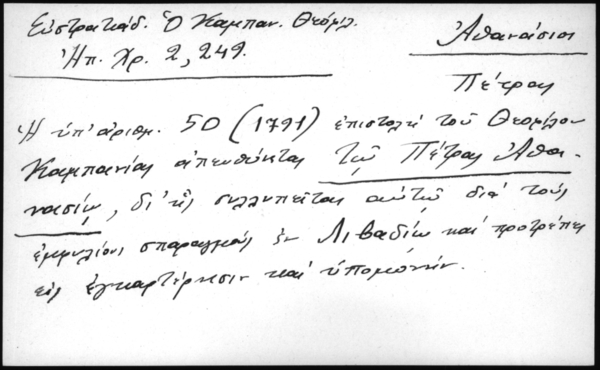 Εὐστρατιάδ. Ὁ Καμπαν. Θεόφιλ.
Ἠπ. Χρ. 2, 249.
Ἀθανάσιοι
Πέτρας
Ἡ ὑπ' ἀριθμ. 50 (1791) ἐπιστολὴ τοῦ Θεοφίλου
Καμπανίας ἀπευθύνεται τῷ Πέτρας Ἀθα-
νασίῳ, δι' ἧς συλλυπεῖται αὐτῷ διὰ τοὺς
ἐμφυλίους σπαραγμοὺς ἐν Λιβαδίῳ καὶ προτρέπει
εἰς ἐγκαρτέρησιν καὶ ὑπομονήν.